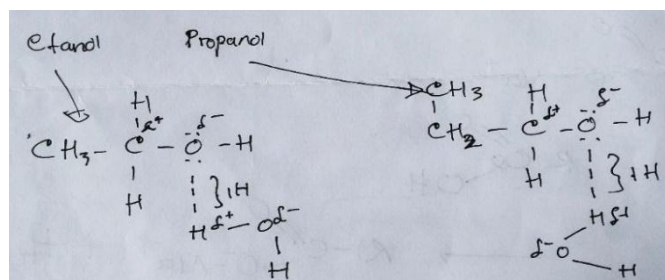 etanol
Propanol
CH3 - C δ+ - O δ- - H
H
H
} IH
H δ+ - O δ-
H
CH3
CH2 - C δ+ - O δ- - H
H
H
} IH
H δ+
δ- O - H